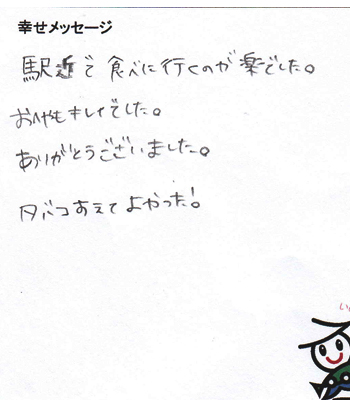 幸せメッセージ
駅近で食べに行くのが楽でした。
おへやもキレイでした。
ありがとうございました。
タバコすえてよかった!